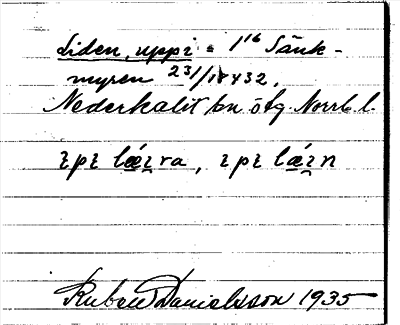 Liden, uppi = 1¹⁶ Sänk-
myren 23/1 1832.
Nederkalix sn ö fg. Norrb. l.
ɿpɿ lǽɿra, ɿpɿ lǽɿn
Ruben Danielsson 1935